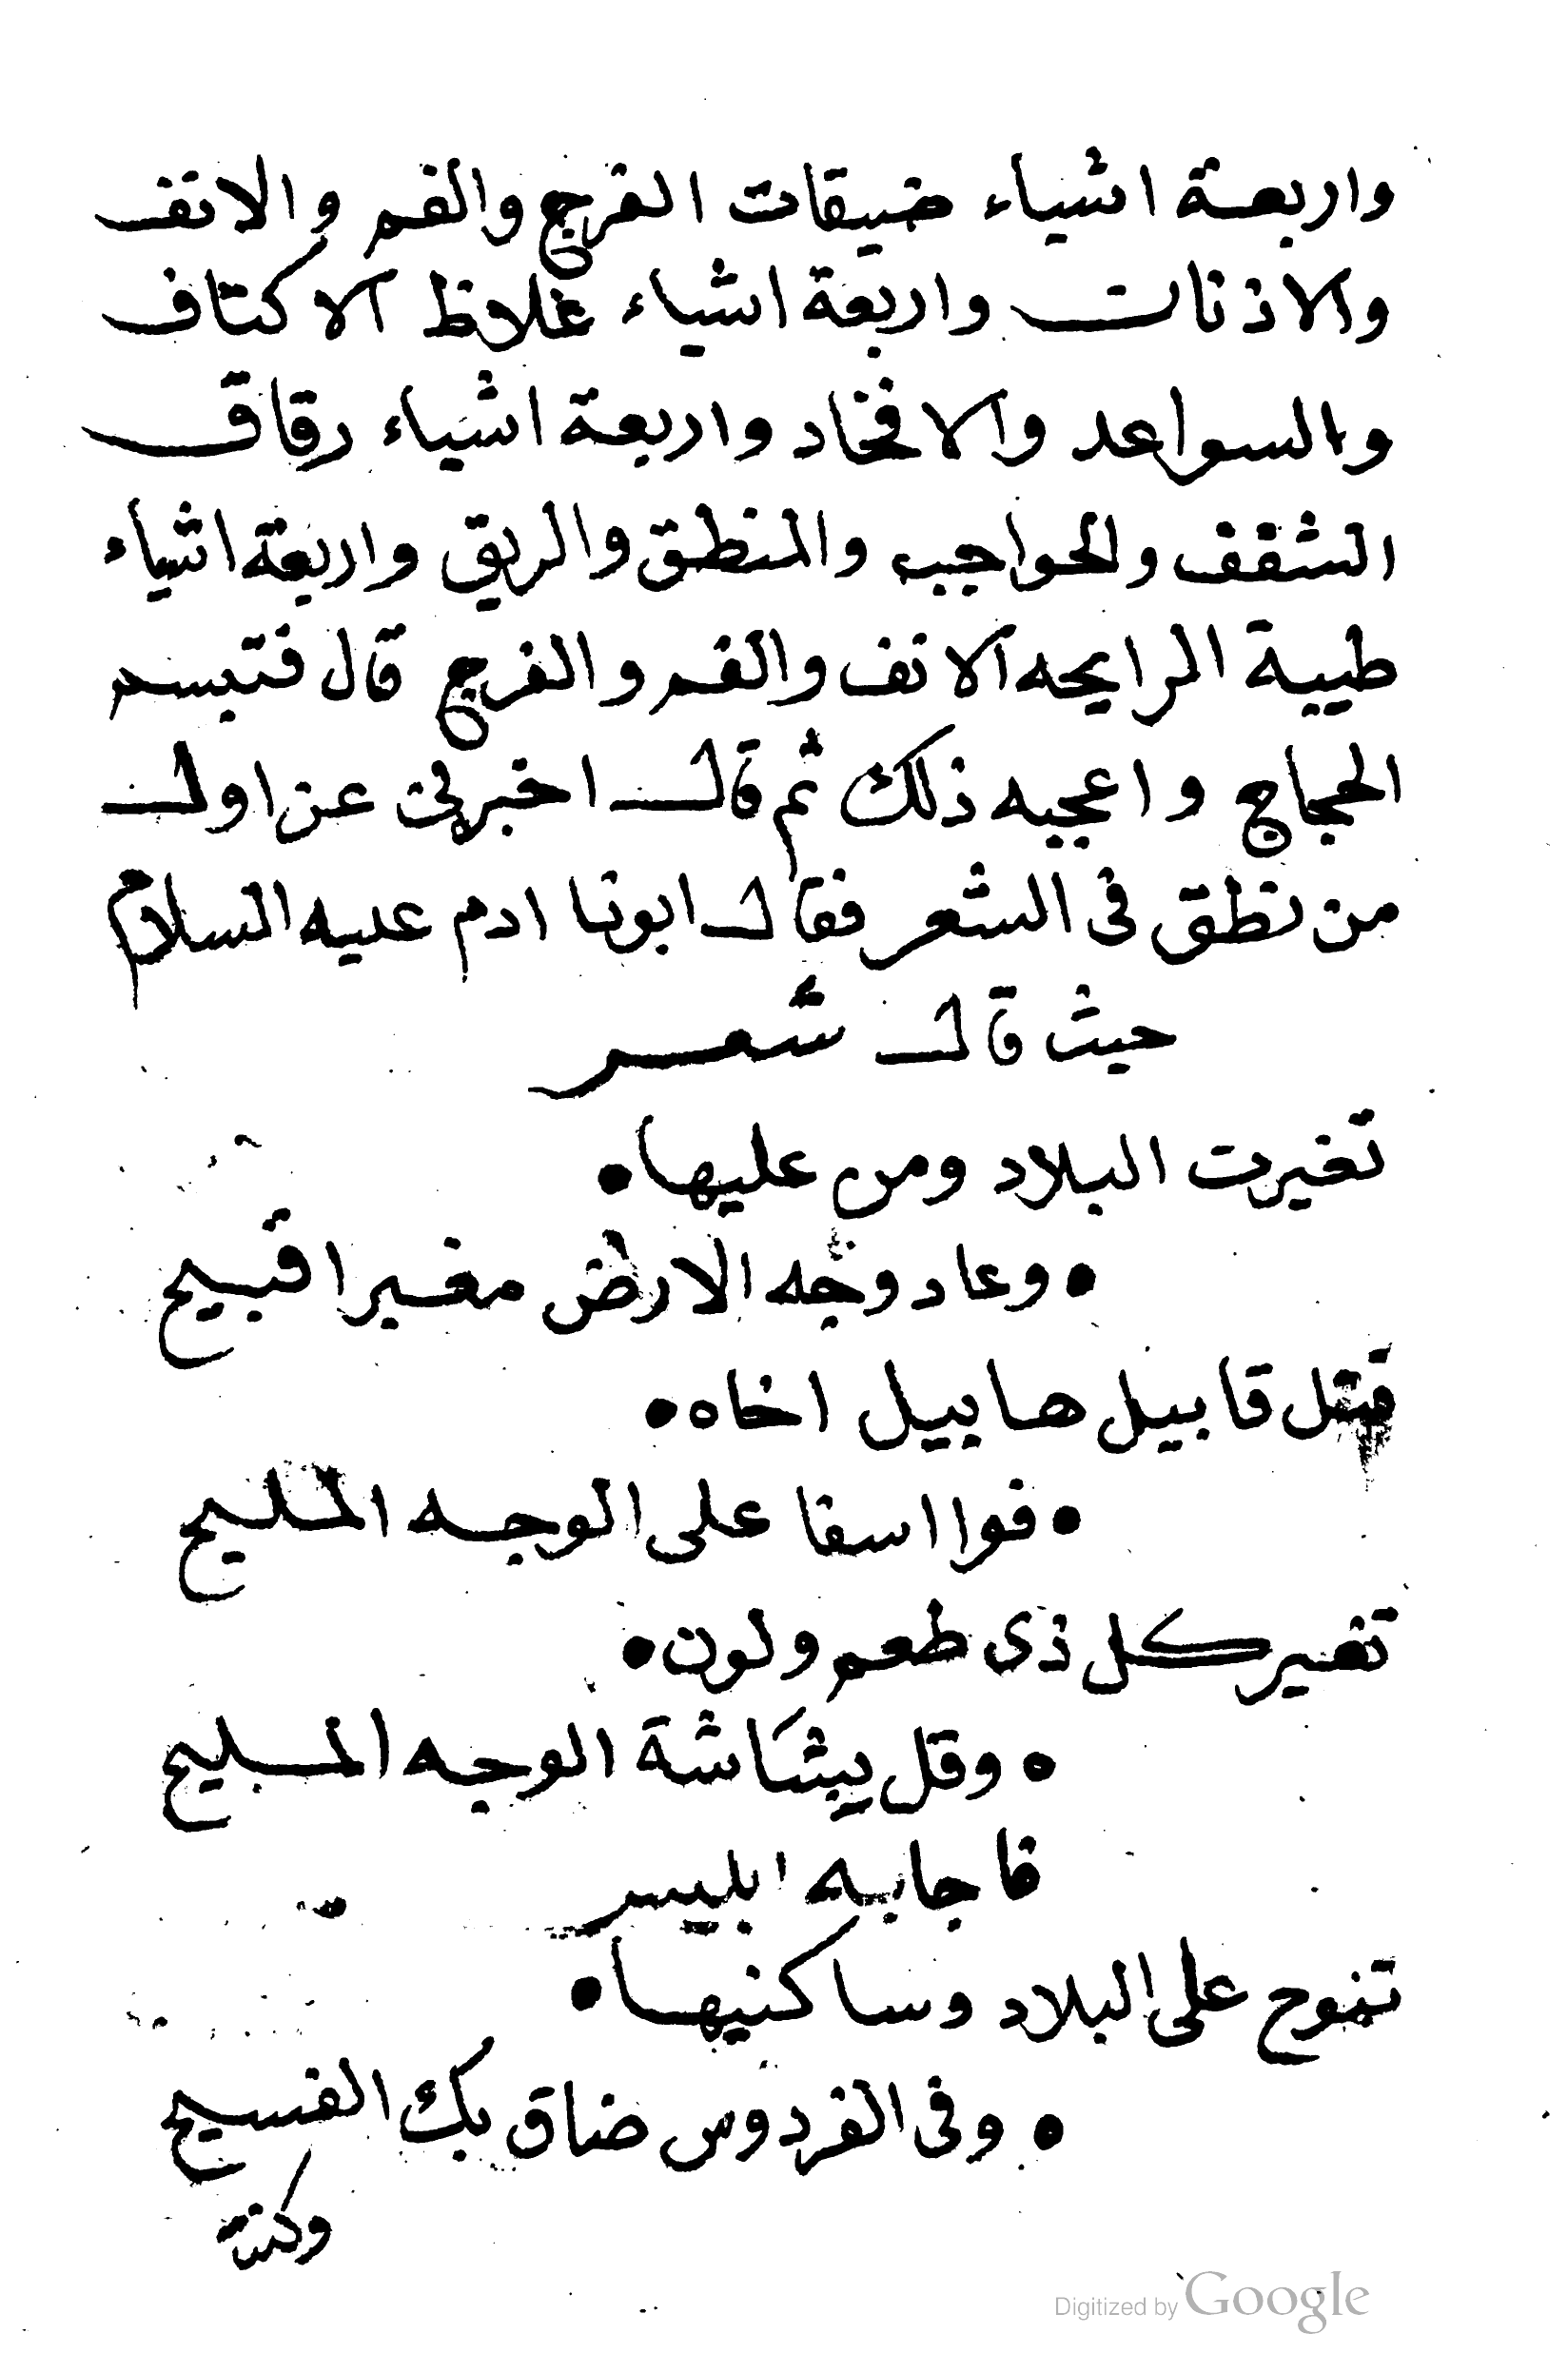 واربعة اشياء ضيقات الفرج والفم والانف
والاذنات واربعة اشياء غلاظ الاكتاف
والسواعد والافخاد واربعة اشياء رقاق
الشقف والحواجب والمنطق والريق واربعة اشياء
طيبة الرايحه الانف والفم والفرج قال فتبسم
الحجاج واعجبه ذلك ثم قال اخبرني عن اول
من نطق فى الشعر فقال ابونا ادم عليه السلام
حيث قال شعر
تغيرت البلاد ومن عليها •
• وعاد وجه الارض مغيرا قبيح
قتل قابيل هابيل اخاه •
• فوا اسفا على الوجه المليح
تغير كل ذى طعم ولون •
• وقل بشاشة الوجه الصبيح
فاجابه ابليس
تنوح على البلاد وساكنيها •
• وفى الفردوس ضاق بك الفسيح
وكنت
Digitized by Google